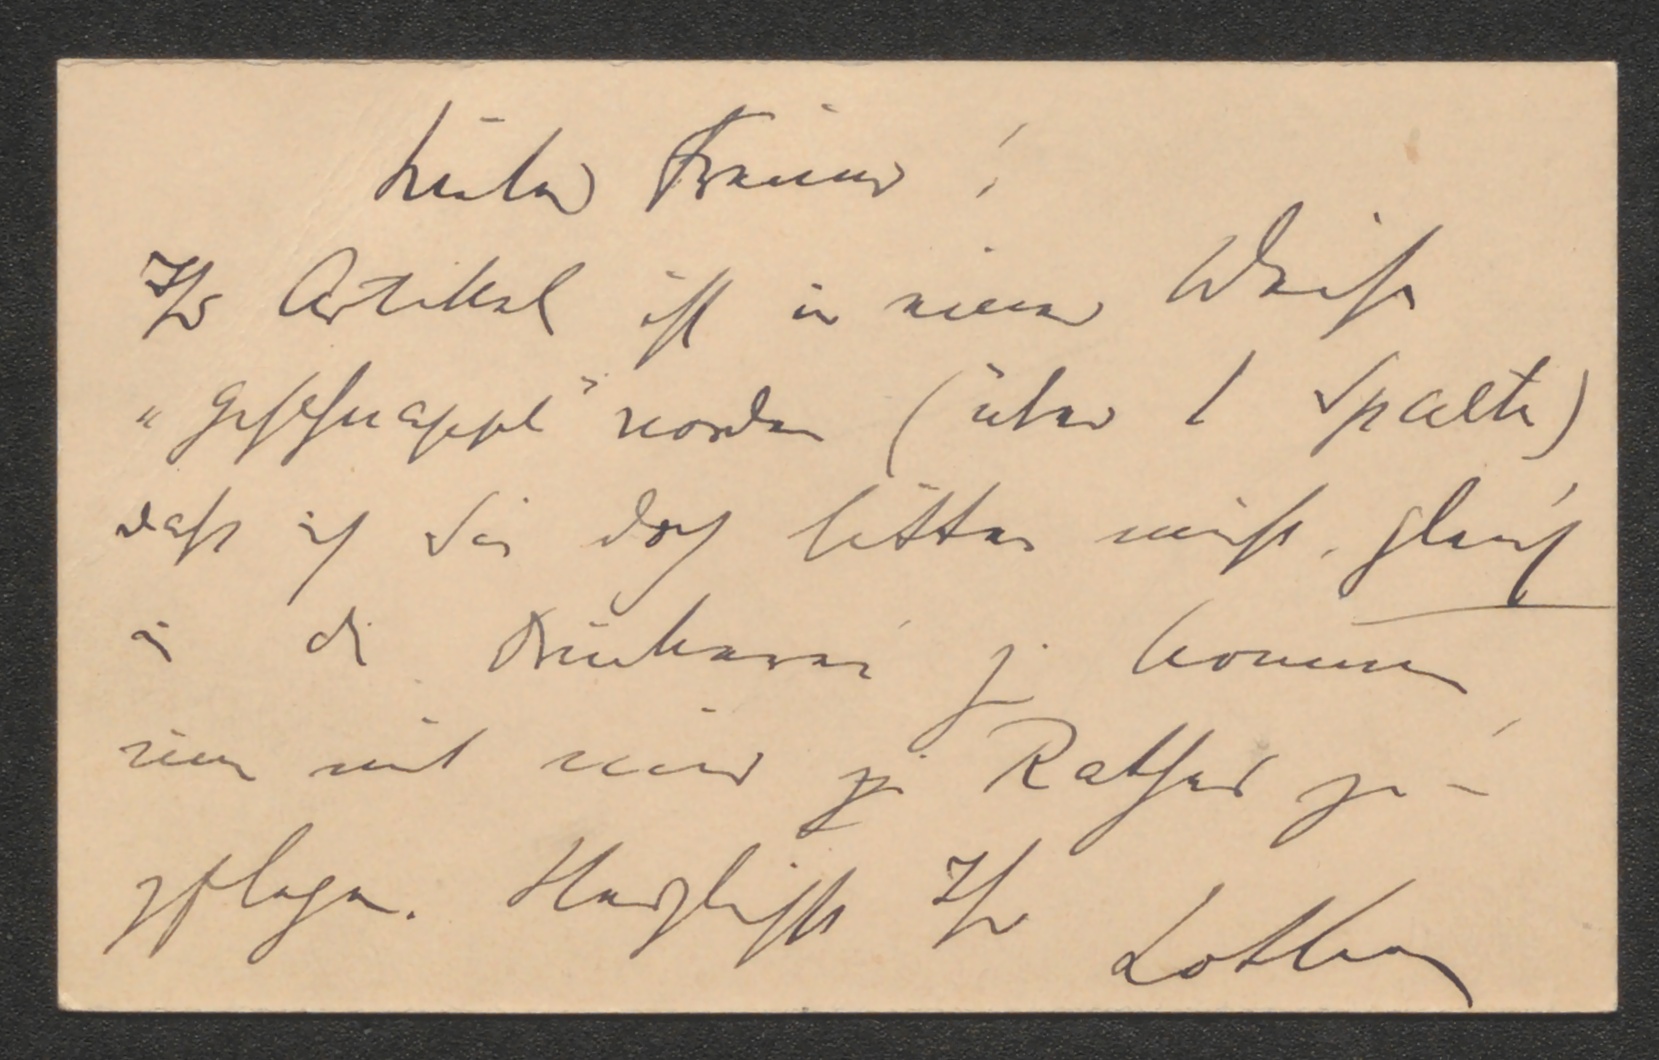 Lieber Freund!
Ihr Artikel ist in einer Weise
„geschnappt" worden (über 1 Spalte)
daß ich Sie doch bitten muß, gleich
in die Druckerei zu kommen
um mit mir zu Rathe zu
pflegen. Herzlichst Ihr
Lothar